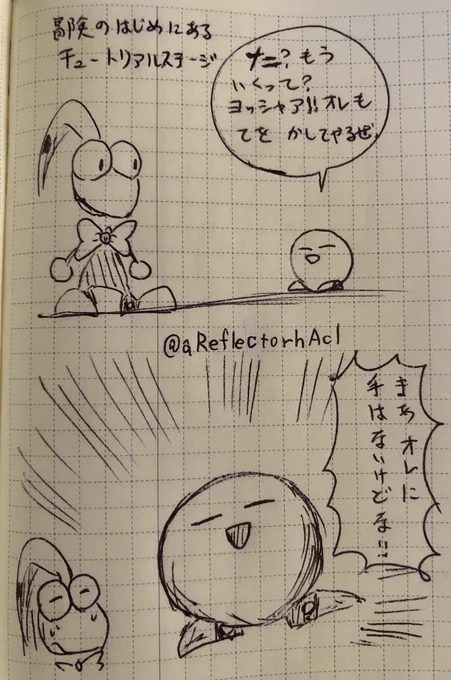 冒険のはじめにある
チュートリアルステージ
ナニ?もう
いくって?
ヨッシャア!!オレも
てを かしてやるぜ
@aReflectorhAcl
まぁオレに
手はないけどな!!